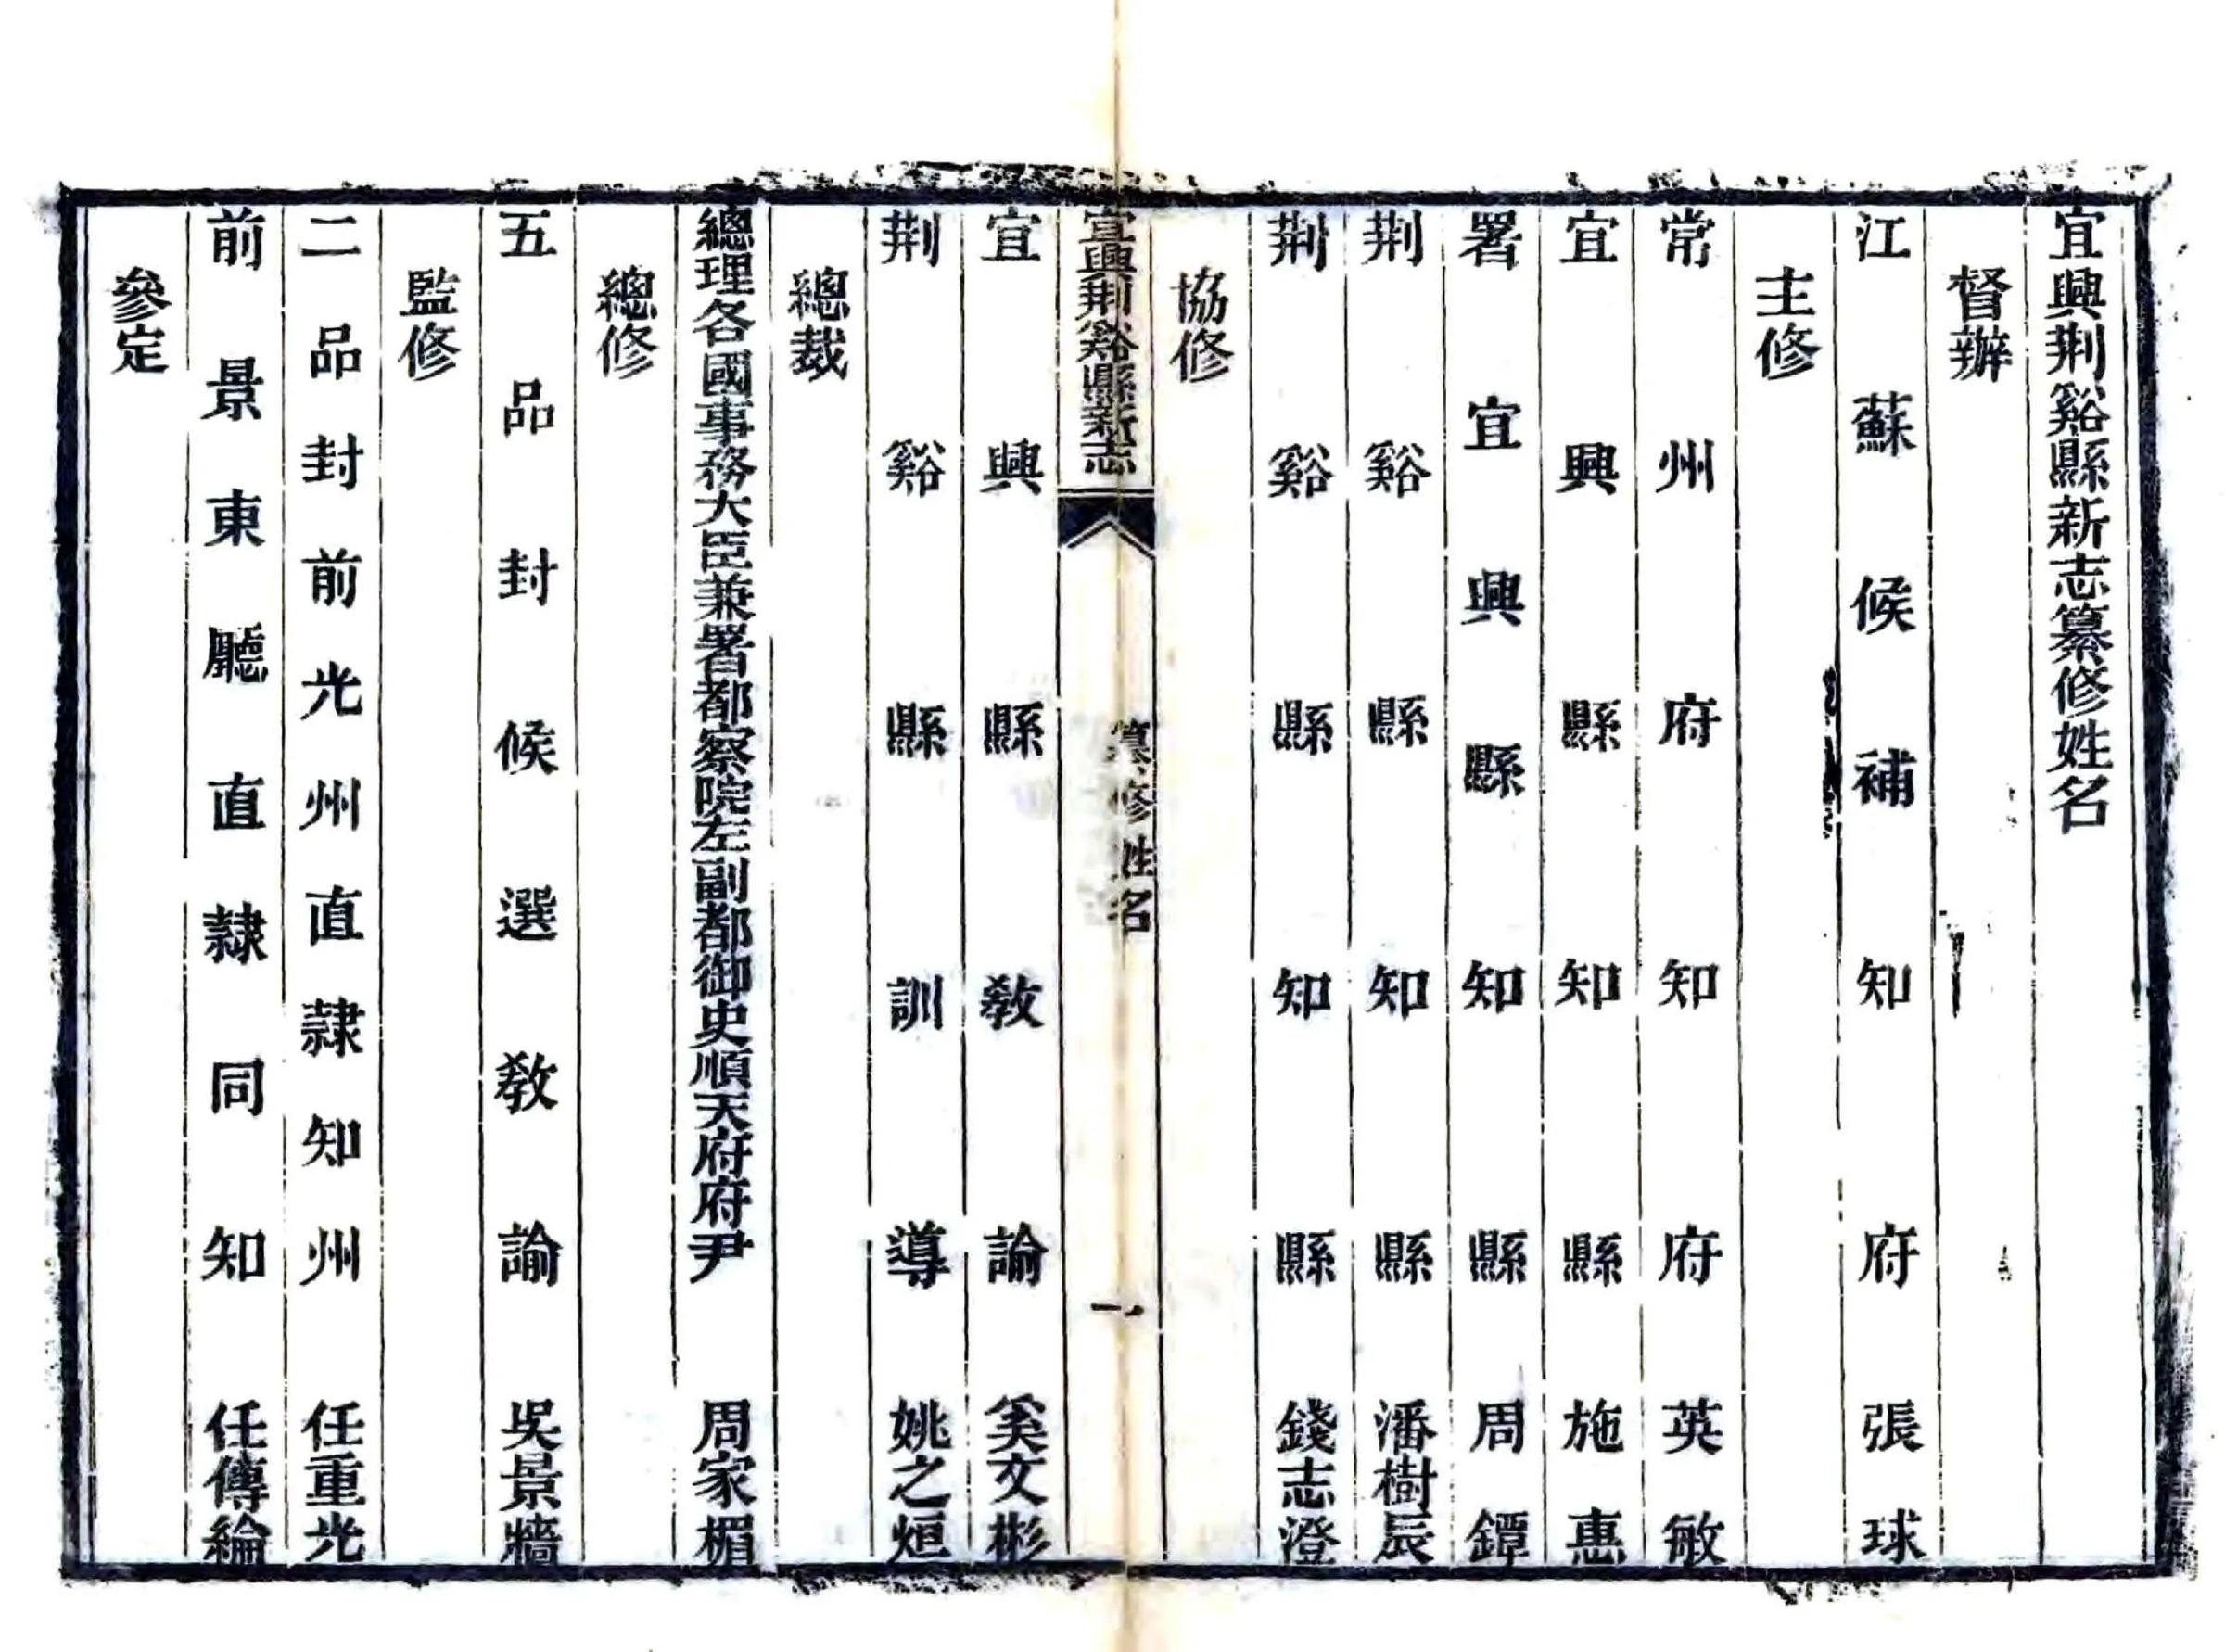 宜興荆谿縣新志纂修姓名
督辦
江蘇候補知府張球
主修
常州府知府英敏
宜興縣知縣施惠
署宜興縣知縣周鐔
荆谿縣知縣潘樹辰
荆谿縣知縣錢志澄
協修
宜興荆谿縣新志
纂修姓名
一
宜興縣敎諭奚文彬
荆谿縣訓導姚之烜
總裁
總理各國事務大臣兼署都察院左副都御史順天府府尹周家楣
總修
五品封候選敎諭吳景牆
監修
二品封前光州直隸知州任重光
前景東廳直隸同知任傳綸
參定